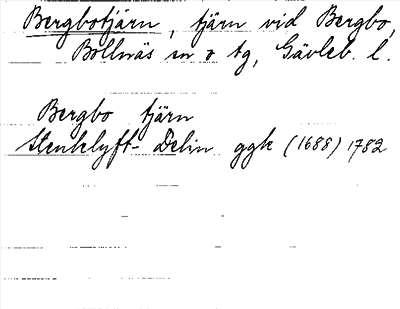 Bergbotjärn, tjärn vid Bergbo,
Bollnäs sn o tg, Gävleb. l.
Bergbo tjärn
Stenklyft- Delin ggk (1688) 1782